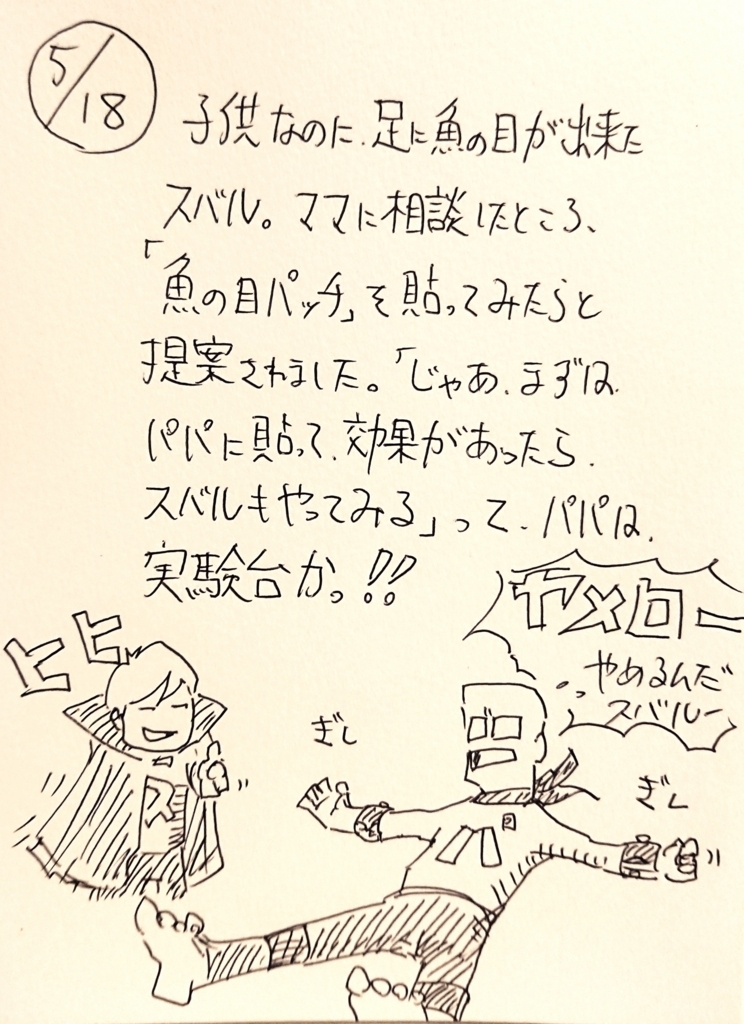 5/18
子供なのに、足に魚の目が出来た
スバル。ママに相談したところ、
「魚の目パッチ」を貼ってみたらと
提案されました。「じゃあ、まずは
パパに貼って、効果があったら、
スバルもやってみる」って、パパは、
実験台かっ!!
ヤメロー
やめるんだ
スバルー
ヒヒ
ぎし
ぎし
ス
パ